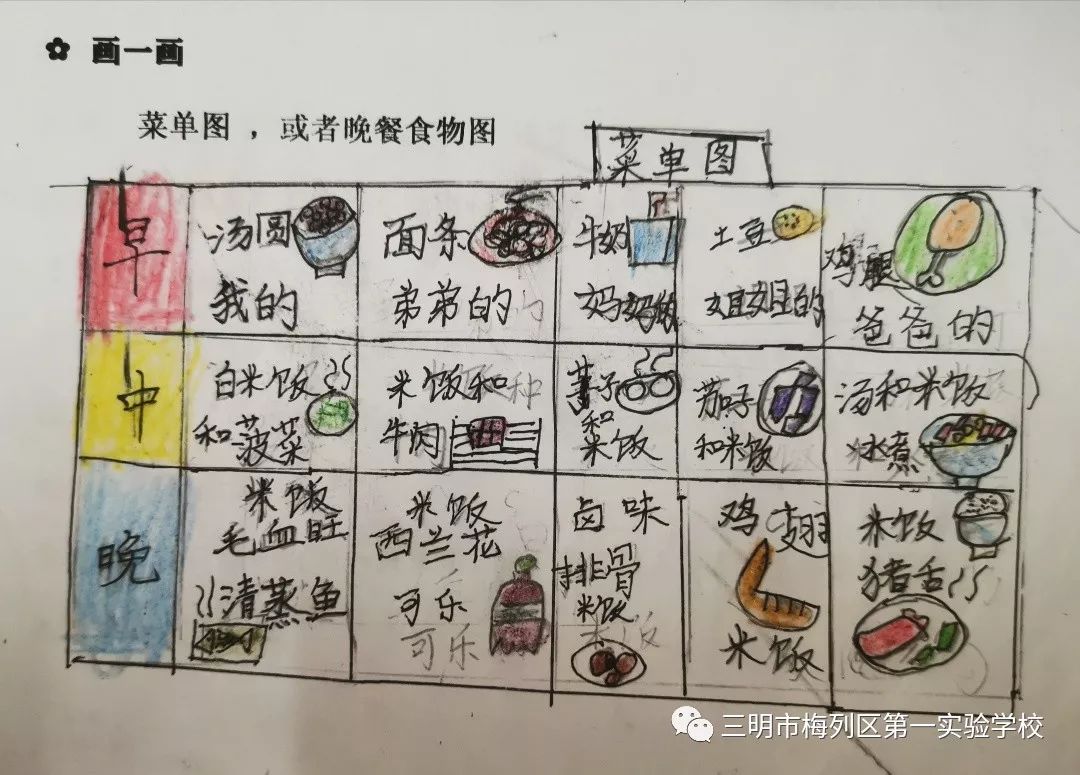 ✿ 画一画
菜单图，或者晚餐食物图
菜单图
早
汤圆
我的
面条
弟弟的
牛奶
妈妈的
土豆
姐姐的
鸡腿
爸爸的
中
白米饭
和菠菜
米饭和
牛肉
和
米饭
茄子
和米饭
汤和米饭
水煮
晚
米饭
毛血旺
清蒸鱼
米饭
西兰花
可乐
可乐
卤味
排骨
米饭
鸡翅
米饭
米饭
猪舌
三明市梅列区第一实验学校